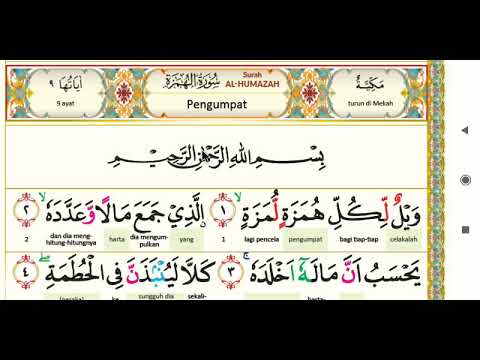 اٰيَاتُهَا ٩
9 ayat
Surah
سُوْرَةُ الْهُمَزَةِ
AL-HUMAZAH
Pengumpat
مَكِّيَّةٌ
turun di Mekah
بِسْمِ اللهِ الرَّحْمٰنِ الرَّحِيْمِ
وَيْلٌ لِّكُلِّ هُمَزَةٍ لُّمَزَةٍۙ ١ الَّذِيْ جَمَعَ مَالًا وَّعَدَّدَهٗۙ ٢
celakalah bagi tiap-tiap pengumpat lagi pencela 1 yang dia mengum-pulkan harta dan dia meng-hitung-hitungnya 2
يَحْسَبُ اَنَّ مَالَهٗٓ اَخْلَدَهٗۚ ٣ كَلَّا لَيُنْۢبَذَنَّ فِى الْحُطَمَةِۖ ٤
sekali- sungguh dia